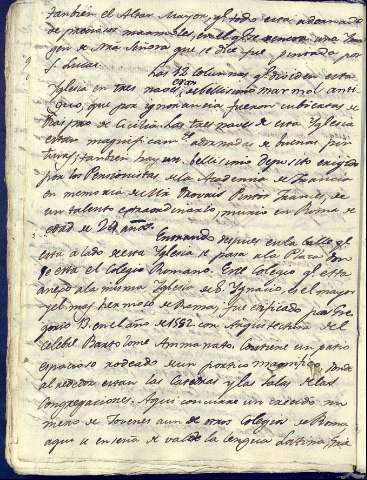 tambien el Altar Mayor, y todo esta adornado
de preciosos marmoles, en el qe se venera una Ima-
gen de Nra Señora que se dice fue pintada por
S. Lucas.
Las 12 columnas qe dividen esta
Iglesia en tres naves, eran de bellisimo marmol anti-
guo, que por ignorancia fueron cubiertas de
de Cicilia. Las tres naves de esta Iglesia
estan magnificamte adornadas de buenas pin-
turas; tambien hay un bellisimo deposito erigido
por los Pensionistas de la Academia de Francia
en memoria de Mr Drovais Pintor Frances, de
un talento extraordinario, murio en Roma de
edad de años.
Entrando despues en la Calle qe
esta a lado de esta Iglesia se pasa a la Plaza don-
de esta el Colegio Romano. Este Colegio qe esta
anejo a la misma Iglesia de S. Ygnacio, es el mayor
y el mas hermoso de Roma; fue edificado por Gre-
gorio 13. en el año de 1582 con Arquitectura del
celebre Bartolome Ammanato. Contiene un patio
espacioso rodeado de un portico magnifico, donde
al rededor estan las Catedras y las Salas de las
Congregaciones. Aqui concurre un crecido nu-
mero de Jovenes aun de otros Colegios de Roma,
aqui se enseña de valde la lengua Latina,